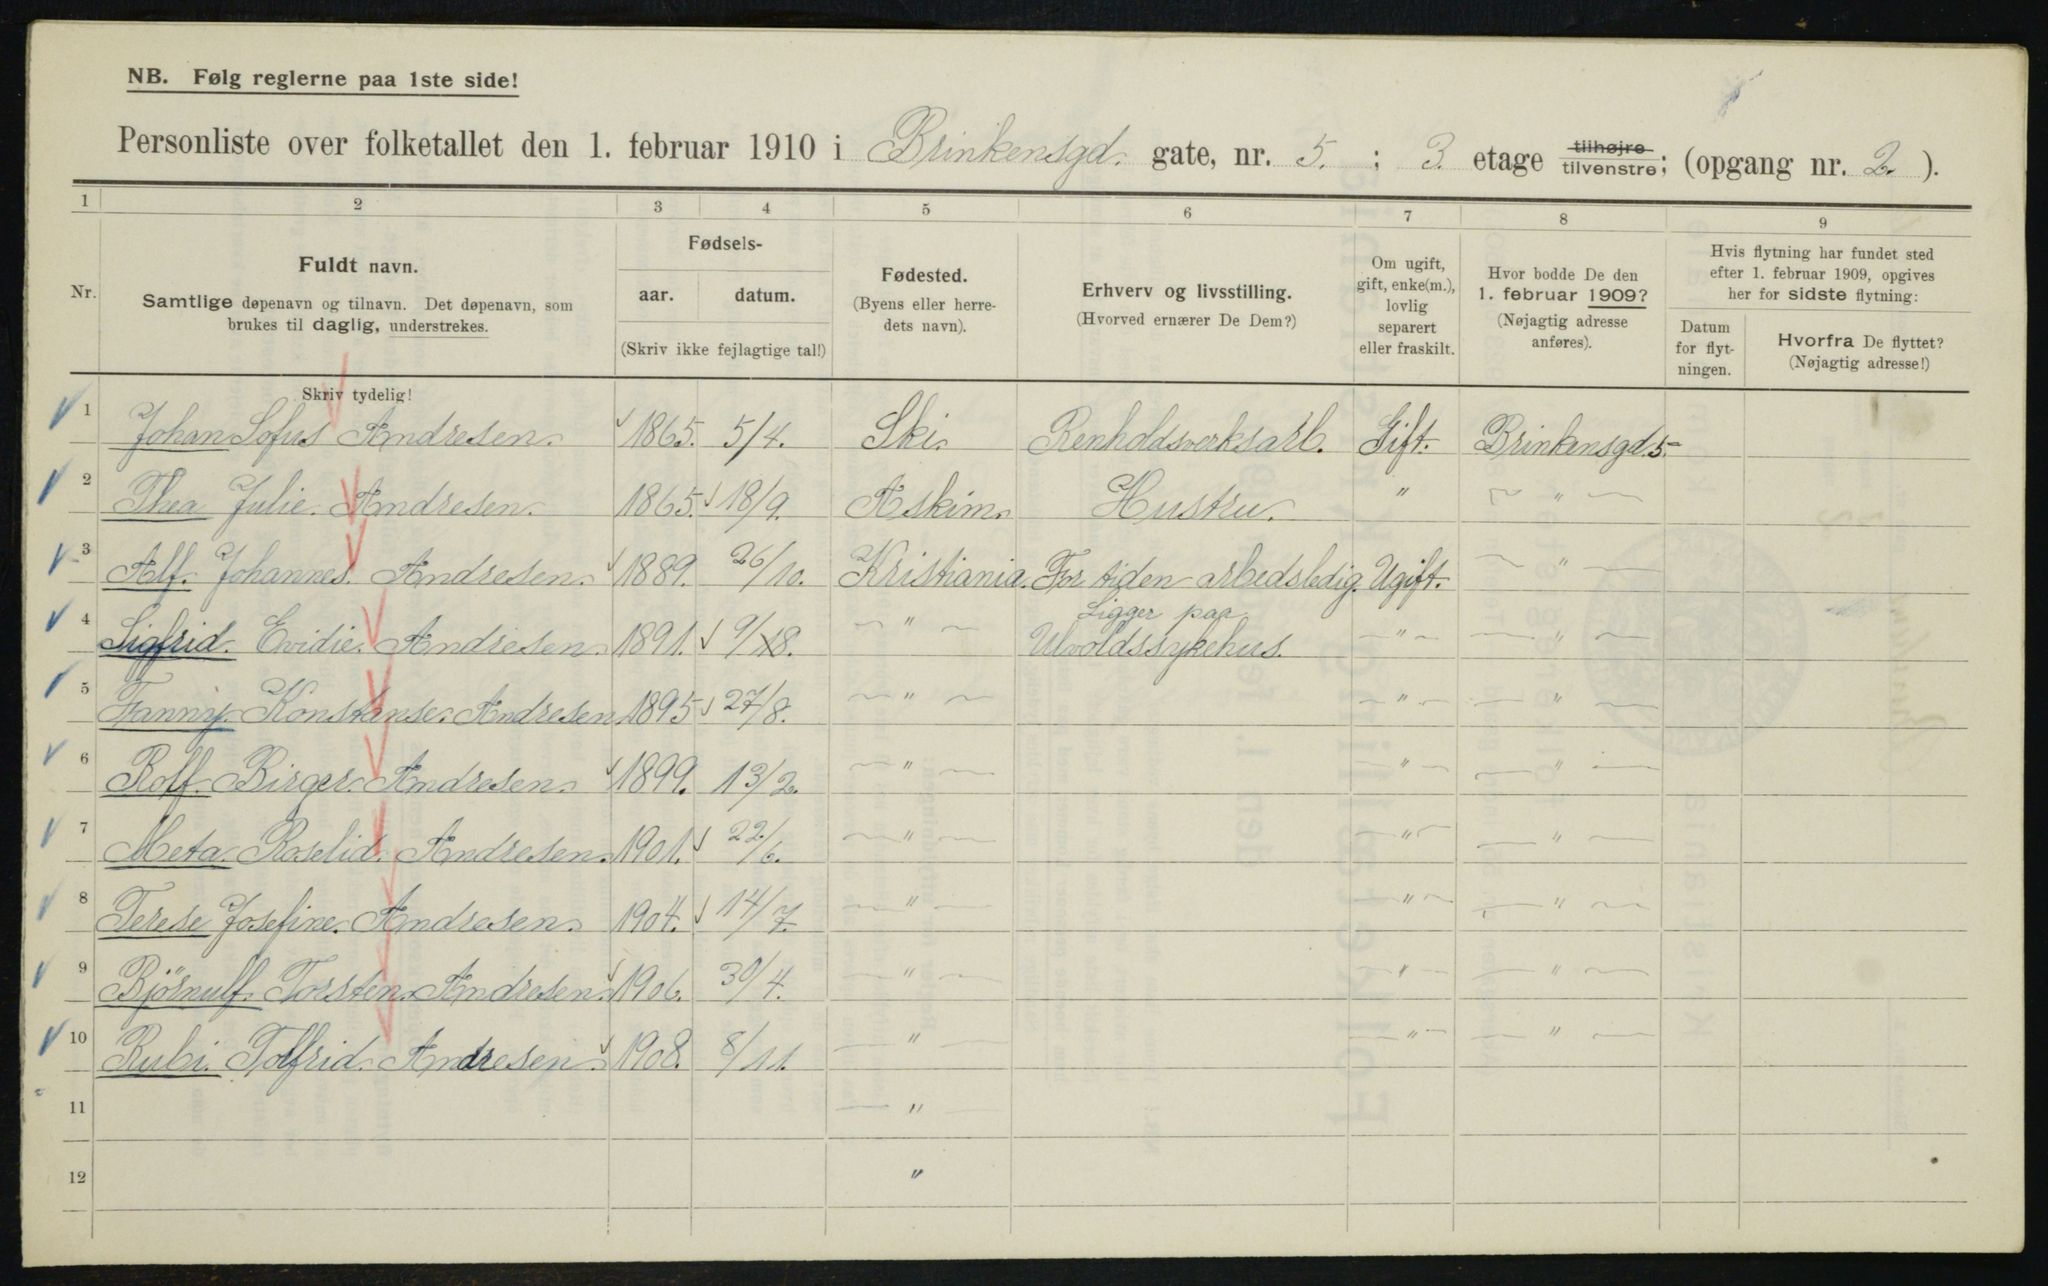 NB. Følg reglerne paa 1ste side!
Personliste over folketallet den 1. februar 1910 i Brinkensgd. gate, nr. 5. ; 3. etage tilhøjre tilvenstre; (opgang nr. 2. ).
1 2 3 4 5 6 7 8 9
Nr.
Fuldt navn.
Samtlige døpenavn og tilnavn. Det døpenavn, som
brukes til daglig, understrekes.
Fødsels-
aar. datum.
(Skriv ikke fejlagtige tal!)
Fødested.
(Byens eller herre-
dets navn).
Erhverv og livsstilling.
(Hvorved ernærer De Dem?)
Om ugift,
gift, enke(m.),
lovlig
separert
eller fraskilt.
Hvor bodde De den
1. februar 1909?
(Nøjagtig adresse
anføres).
Hvis flytning har fundet sted
efter 1. februar 1909, opgives
her for sidste flytning:
Datum
for flyt-
ningen.
Hvorfra De flyttet?
(Nøjagtig adresse!)
Skriv tydelig!
1 Johan Sofus Andresen. 1865. 5/4. Ski. Renholdsverksarb. Gift. Brinkensgd. 5-
2 Thea Julie. Andresen. 1865. 18/9. Askim. Hustru. " — " —
3 Alf. Johannes. Andresen. 1889. 26/10. Kristiania. For tiden arbedsledig. Ugift. — " —
4 Sigfrid. Evidie. Andresen. 1891. 9/18. — " — Ligger paa Ulvoldssykehus. — " — — " —
5 Fanny. Konstanse. Andresen. 1895 27/8. — " — — " — — " —
6 Rolf. Birger. Andresen. 1899. 13/2. — " — — " — — " —
7 Meta. Roselid. Andresen. 1901. 22/6. — " — — " — — " —
8 Terese Josefine. Andresen. 1904. 14/7. — " — — " — — " —
9 Bjørnulf. Torsten. Andresen. 1906. 30/4. — " — — " — — " —
10 Rubi. Tolfrid. Andresen. 1908. 8/11. — " — — " — — " —
11 — " —
12 "